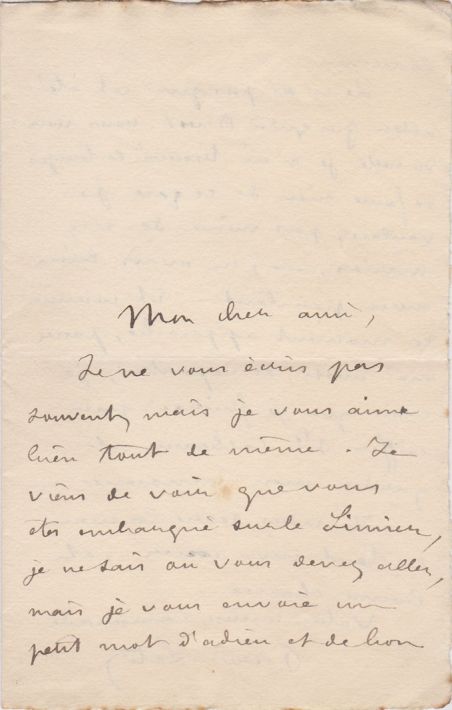 Mon cher ami,
Je ne vous écris pas
souvent, mais je vous aime
bien tout de même. Je
viens de voir que vous
etes embarqué sur le Linier,
je ne sais ou vous devez aller,
mais je vous envoie un
petit mot d'adieu et de bon